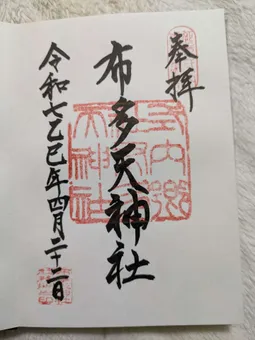 奉拝
布多天神社
令和七乙巳年四月二十二日